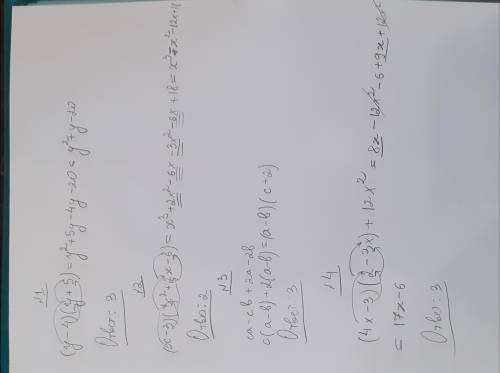 №1
(y-4)(y+5)=y²+5y-4y-20=y²+y-20
Ответ: 3
№2
(x-3)(x²+2x-6)=x³+2x²-6x-3x²-6x+18=x³-x²-12x+18
Ответ: 2
№3
ca-cb+2a-2b
c(a-b)+2(a-b)=(a-b)(c+2)
Ответ: 3
№4
(4x-3)(2-3x)+12x²=8x-12x²-6+9x+12x²
=17x-6
Ответ: 3